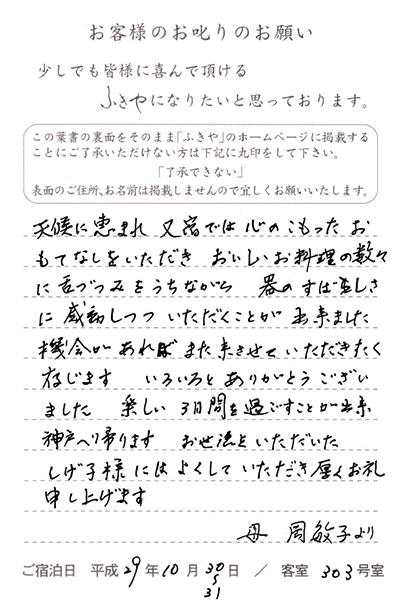 お客様のお叱りのお願い
少しでも皆様に喜んで頂ける
ふきやになりたいと思っております。
この葉書の裏面をそのまま「ふきや」のホームページに掲載する
ことにご了承いただけない方は下記に丸印をして下さい。
「了承できない」
表面のご住所、お名前は掲載しませんので宜しくお願いいたします。
天候に恵まれ 又宿では心のこもったお
もてなしをいただき おいしいお料理の数々
に舌づつみをうちながら 器のすばらしさ
に感動しつつ いただくことが出来ました
機会があれば また来させていただきたく
存じます いろいろとありがとうござい
ました 楽しい3日間を過ごすことが出来
神戸へ帰ります お世話をいただいた
しげ子様にはよくしていただき厚くお礼
申し上げます
敏子より
ご宿泊日 平成29年10月30〜31日 / 客室 303号室